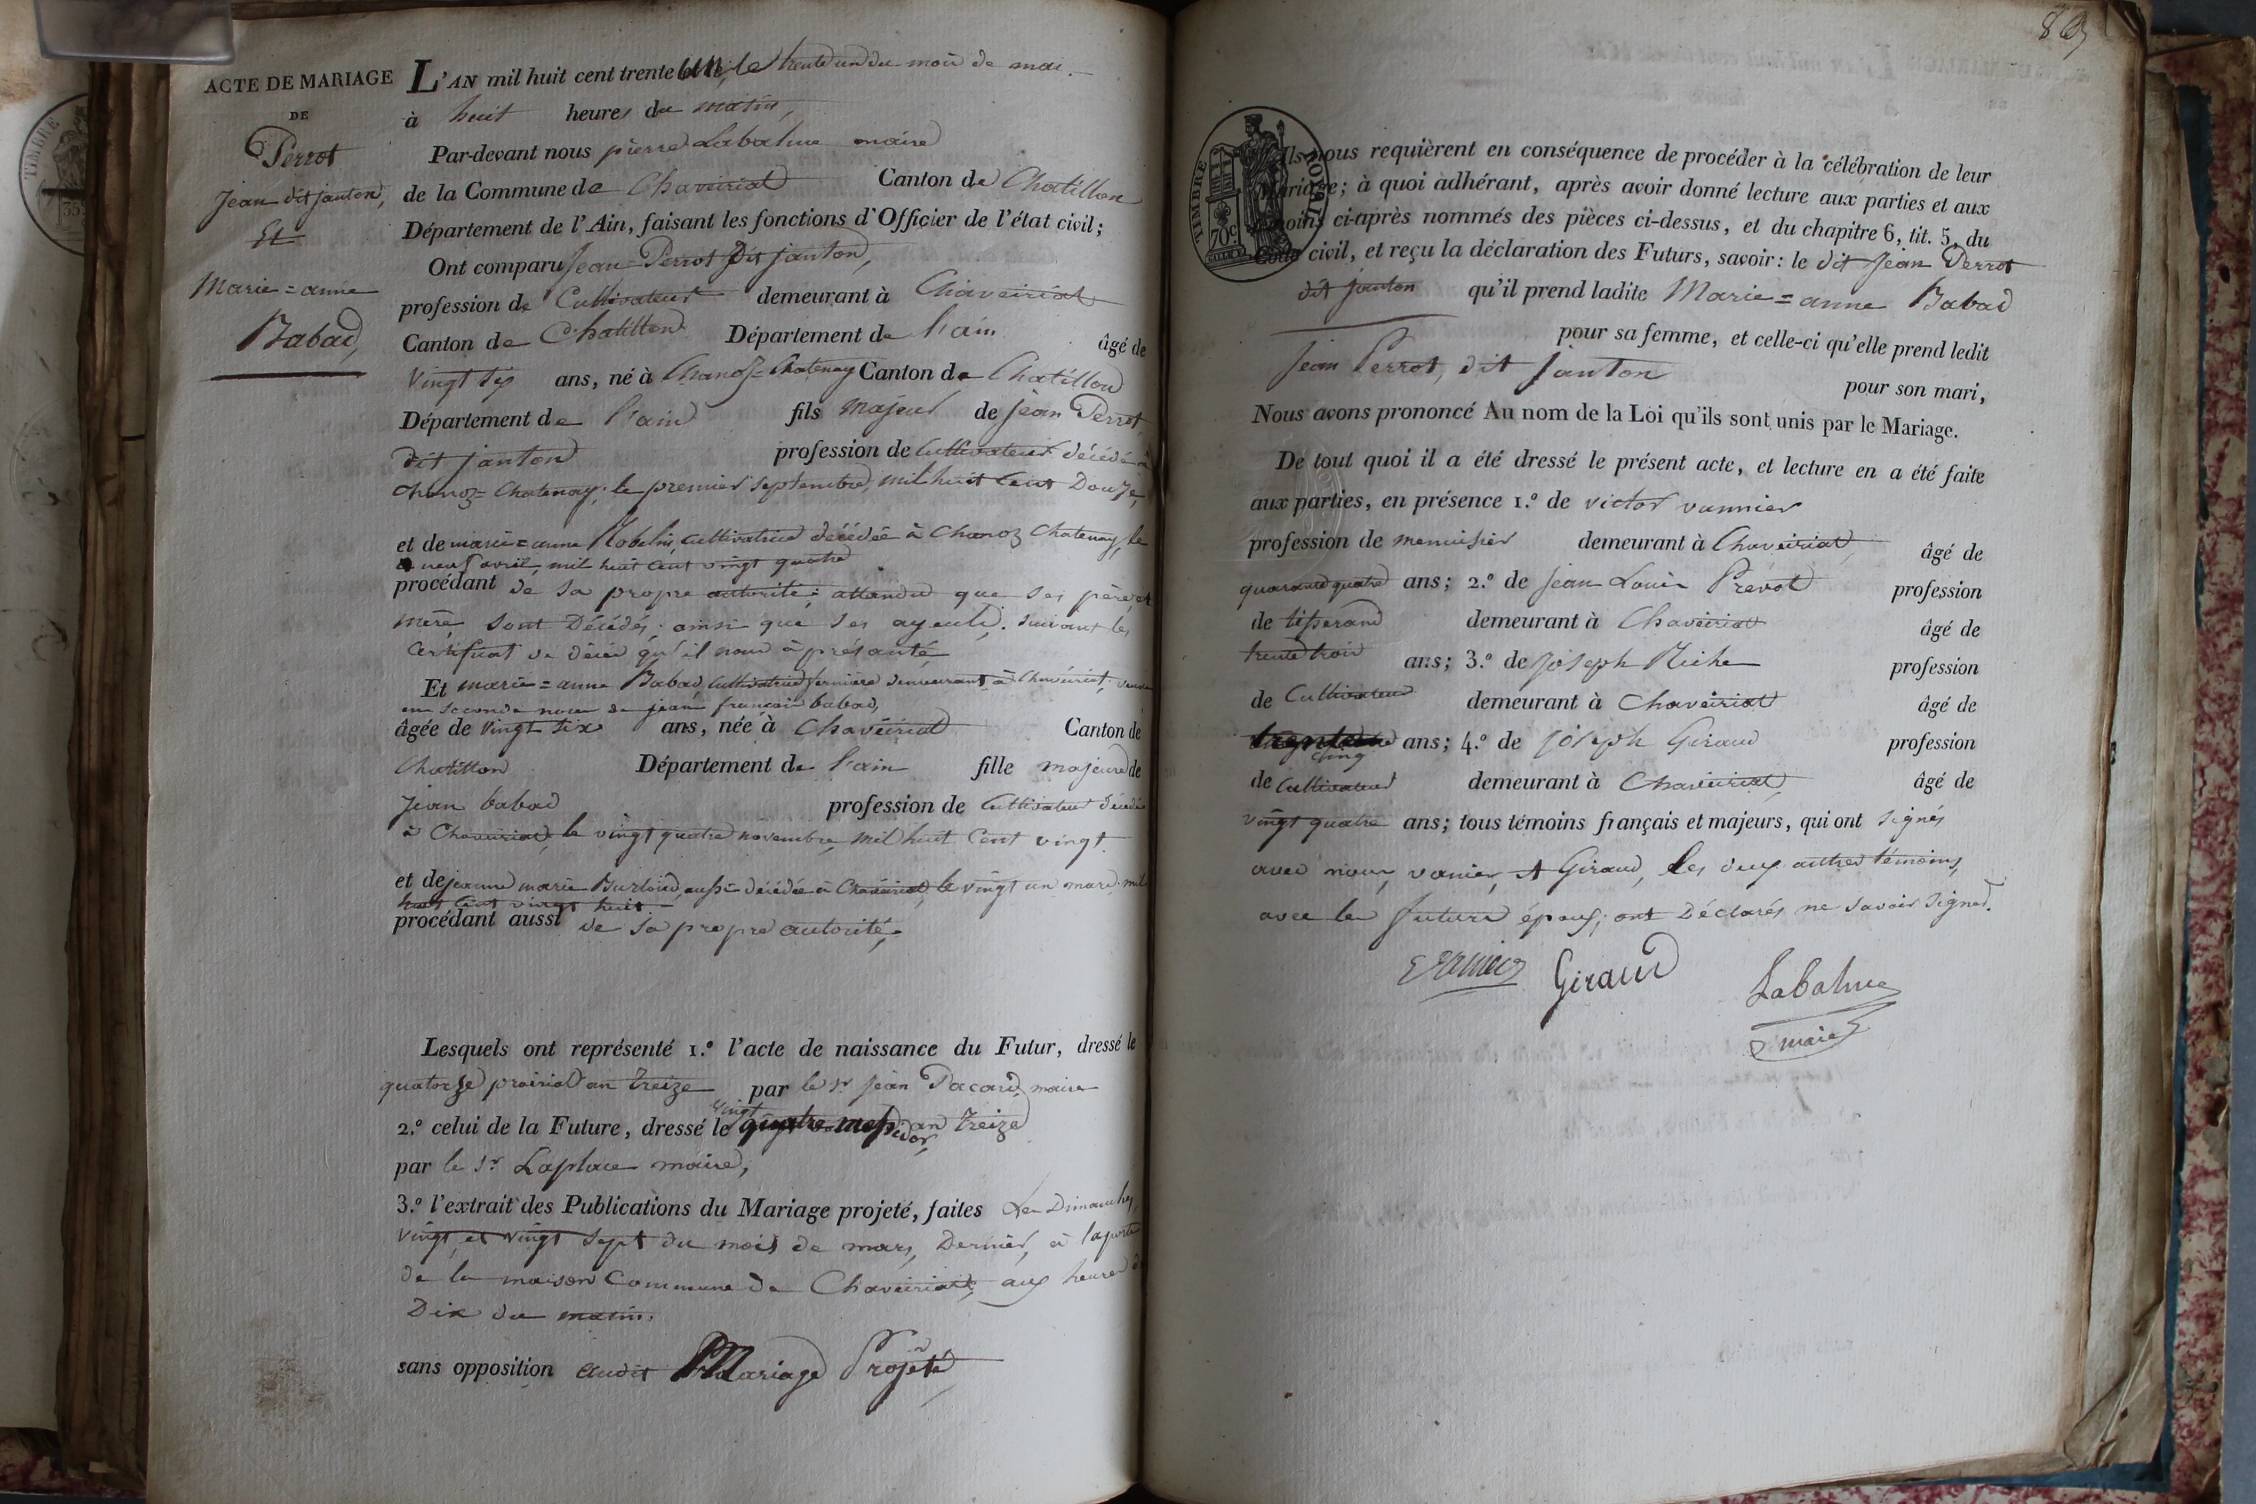 ACTE DE MARIAGE
DE
Perrot
Jean dit janton,
Et
Marie=anne
Babad,
L'AN mil huit cent trente un, le trente un du mois de mai.
à huit heures du matin,
Par-devant nous pierre Labalme maire
de la Commune de Chaveiriat Canton de Chatillon
Département de l'Ain, faisant les fonctions d'Officier de l'état civil;
Ont comparu Jean Perrot Dit janton,
profession de Cultivateur demeurant à Chaveiriat
Canton de Chatillon Département de l'ain âgé de
Vingt six ans, né à Chanoz=Chatenay Canton de Chatillon
Département de l'ain fils majeur de jean Perrot,
dit janton profession de Cultivateur décédé à
chanoz=Chatenay, le premier septembre, mil huit Cent Douze,
et de marie=anne Robelin, cultivatrice décédée à Chanoz Chatenay, le
neuf avril, mil huit cent vingt quatre
procédant de sa propre autorité; attendu que ses père et
mère sont Décédés; ainsi que ses ayeuls. suivant les
Certificat de décès qu'il nous à présanté
Et marie=anne Babad, Cultivatrice fermière demeurant à Chaveiriat, veuve
en seconde noce de jean françois babad,
âgée de Vingt six ans, née à Chaveiriat Canton de
Chatillon Département de l'ain fille majeure de
Jean babad profession de Cultivateur décédé
à Chaveiriat, le vingt quatre novembre, mil huit Cent vingt.
et de jeanne marie aussi décédée à Chaveiriat, le vingt un mars mil
huit Cent vingt huit
procédant aussi de sa propre autorité,
Lesquels ont représenté 1.º l'acte de naissance du Futur, dressé le
quatorze prairial an treize par le sr jean Pacard, maire
2.º celui de la Future, dressé le vingt quatre messidor, an treize
par le sr Laplace maire,
3.º l'extrait des Publications du Mariage projeté, faites Les Dimanches,
vingt et vingt sept du mois de mars, Dernier, à la porte
de la maison Commune de Chaveiriat, aux heures de
Dix du matin.
sans opposition audit Mariage Projeté
869
TIMBRE ROYAL
70 c
Ils nous requièrent en conséquence de procéder à la célébration de leur
Mariage; à quoi adhérant, après avoir donné lecture aux parties et aux
témoins ci-après nommés des pièces ci-dessus, et du chapitre 6, tit. 5, du
Code civil, et reçu la déclaration des Futurs, savoir: le dit Jean Perrot
dit janton qu'il prend ladite Marie=anne Babad
pour sa femme, et celle-ci qu'elle prend ledit
jean Perrot, dit Janton pour son mari,
Nous avons prononcé Au nom de la Loi qu'ils sont unis par le Mariage.
De tout quoi il a été dressé le présent acte, et lecture en a été faite
aux parties, en présence 1.º de victor vannier
profession de menuisier demeurant à Chaveiriat, âgé de
quarante quatre ans; 2.º de Jean Louis Prévot profession
de tisserand demeurant à Chaveiriat âgé de
trente trois ans; 3.º de joseph Miche profession
de Cultivateur demeurant à Chaveiriat âgé de
trente cinq ans; 4.º de joseph Giraud profession
de Cultivateur demeurant à Chaveiriat, âgé de
vingt quatre ans; tous témoins français et majeurs, qui ont signés
avec nous, vanier, et Giraud, les deux autres témoins,
avec les futurs époux, ont Déclarés ne savoir signer.
Vanier Giraud Labalme
maire